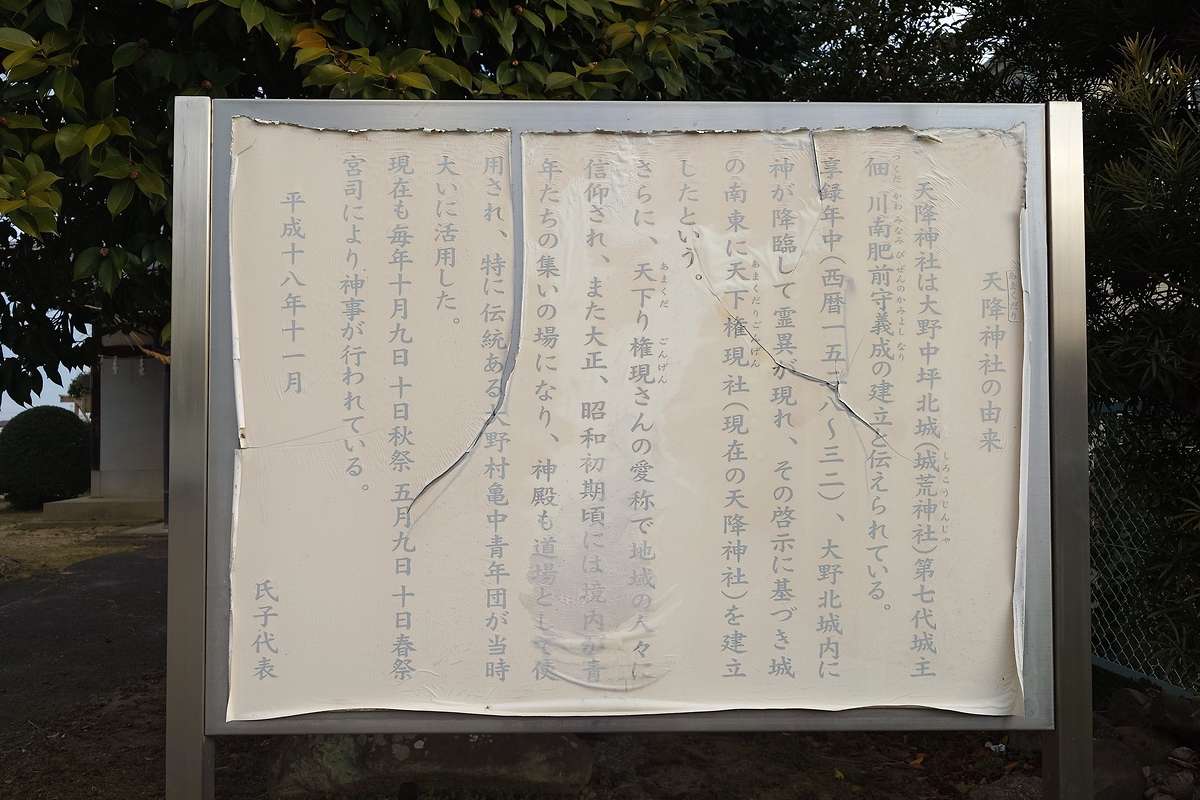 天降神社の由来
天降神社は大野中坪北城(城荒神社)第七代城主
佃 川南肥前守義成の建立と伝えられている。
享録年中(西暦一五二八～三二)、大野北城内に
神が降臨して霊異が現れ、その啓示に基づき城
の南東に天下権現社(現在の天降神社)を建立
したという。
さらに、天下り権現さんの愛称で地域の人々に
信仰され、また大正、昭和初期頃には境内が青
年たちの集いの場になり、神殿も道場として使
用され、特に伝統ある大野村亀中青年団が当時
大いに活用した。
現在も毎年十月九日 十日秋祭 五月九日 十日春祭
宮司により神事が行われている。
平成十八年十一月
氏子代表